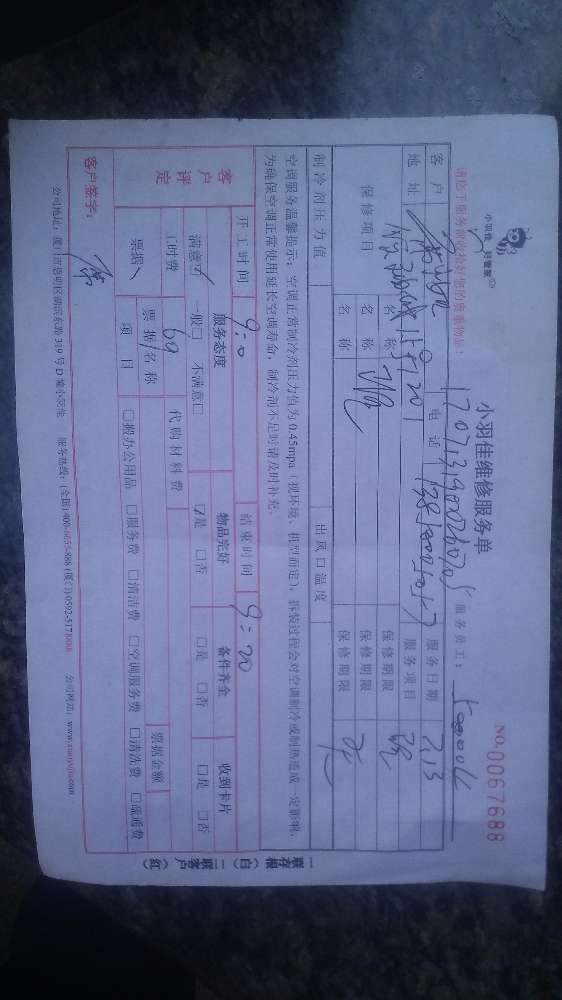 小羽佳 好管家
请您于服务前收拾好您的贵重物品!
小羽佳维修服务单
NO. 0067688
服务员工:
客户
电话
服务日期 7.13
地址
服务项目
保修项目
名称
保修期限
名称
保修期限
名称
保修期限
制冷剂压力值
出风口温度
空调服务温馨提示:空调正常制冷剂压力值为0.45mpa(视环境、机型而定),拆装过程会对空调制冷或制热造成一定影响,
为确保空调正常使用延长空调寿命,制冷剂不足时请及时补充。
客户评定
开工时间 9:0
结束时间 9:20
服务态度
物品完好
备件齐全
收到卡片
满意☑ 一般□ 不满意□
☑是 □否
□是 □否
□是 □否
工时费 60
代购材料费
票据
票据名称
票据金额
项目
□搬办公用品 □服务费 □清洁费 □空调服务费 □清洗费 □疏通费
客户签字:
公司地址:厦门市思明区湖滨东路319号D栋小羽佳 服务热线:(全国)400-6055-888 (厦门)0592-5178888 公司网站:www.xiaoyujia.com
一联存根(白) 二联客户(红)